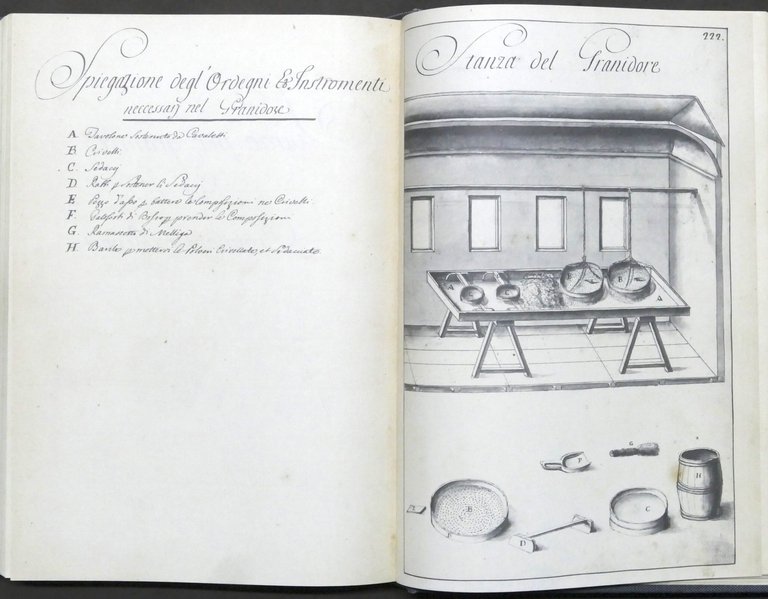 Spiegazione degl'Ordegni & Instromenti
neccessarij nel Granidore
A Tavolone sostenuto da Cavaletti
B Crivelli
C Sedacij
D Ratti p sostener li Sedacij
E Pezzo d'asse p battere le Composizioni ne Crivelli
F di p prender le Composizioni
G Ramassetta di Melliga
H Barile p mettervi le Polveri Crivellate, et Sedacciate
222.
Stanza del Granidore
A B B A
F G H
B D C